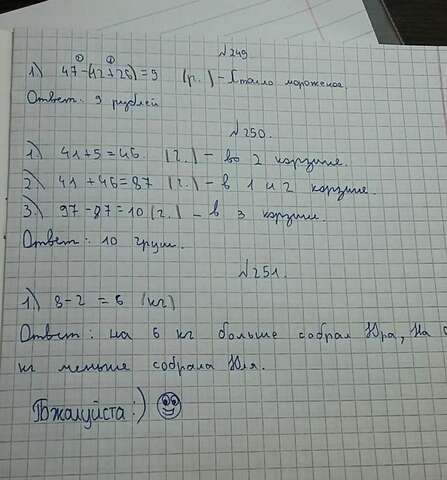 №249.
② ①
1) 47-(12+26)=9 (р.) - Стоило мороженое.
Ответ: 9 рублей
№250.
1) 41+5=46. (г.) - во 2 корзине.
2) 41+46=87 (г.) - в 1 и 2 корзине.
3) 97-87=10 (г.) - в 3 корзини.
Ответ: 10 груш.
№251.
1) 8-2=6 (кг)
Ответ: на 6 кг больше собрал Юра, На 6
кг меньше собрала Юля.
Пожалуйста:)